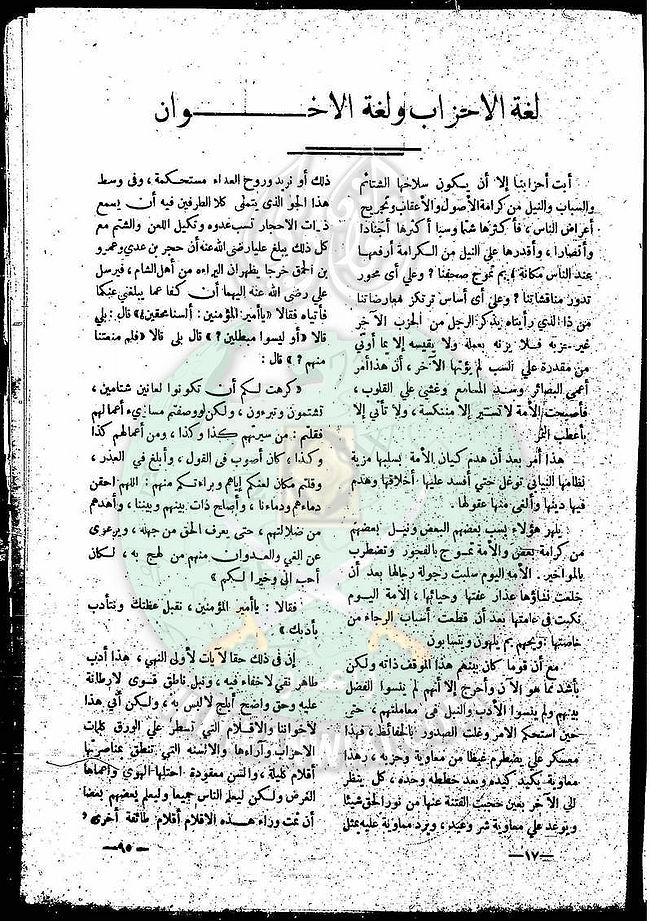 لغة الاحزاب ولغة الاخـــوان
أبت أحزابنا إلا أن يكون سلاحها الشتائم
والسباب والنيل من كرامة الأصول والأعقاب وتجريح
أعراض الناس، فأكثرها شتما وسبا أكثرها أجنادا
وأنصارا، وأقدرها على النيل من الكرامة أرفعها
عند الناس مكانة؛ بم تموج صحفنا؟ وعلى أى محور
تدور مناقشاتنا؟ وعلى أى أساس ترتكز معارضاتنا
من ذا الذى رأيناه يذكر الرجل من الحزب الآخر
غير حزبه فلا يزنه بعمله ولا يقيسه إلا بما أوتى
من مقدرة على السب لم يؤتها الآخر، أن هذا أمر
أعمى البصائر وسد المسامع وغشى على القلوب،
فأصبحت الأمة لا تسير إلا منتكسة، ولا تأتى إلا
بأعطب الثمر
هذا أمر بعد أن هدم كيان الأمة بسلبها مزية
نظامها النيابى توغل حتى أفسد عليها أخلاقها وهدم
فيها دينها وألغى منها عقولها.
يلهو هؤلاء بسب بعضهم البعض ونيل بعضهم
من كرامة بعض والأمة تموج بالفجور وتضطرب
بالمواخير. الأمة اليوم سلبت رجولة رجالها بعد أن
خلعت نساؤها عذار عفتها وحيائها، الأمة اليوم
نكبت فى عامتها بعد أن قطعت أسباب الرجاء من
خاصتها؛ ويحهم بم يلهون ويتسابون
مع أن قوما كان بينهم هذا الموقف ذاته ولكن
بأشد مما هو الآن وأحرج إلا أنهم لم ينسوا الفضل
بينهم ولم ينسوا الأدب والنبل فى معاملتهم، حتى
حين استحكم الامر وغلت الصدور بالحفائظ، فهذا
معسكر على يضطرم غيظا من معاوية وحزبه، وهذا
معاوية يكيد كيده ويعد خططه وحده، كل ينظر
الى الآخر بعين حجبت الفتنة عنها من نور الحق شيئا
ويوعد على معاوية شر وعيد، ويرد معاوية عليه بمثل
—١٧—
ذلك أو نزيد وروح العداء مستحكمة، وفى وسط
هذا الجو الذى يتمنى كلا الطرفين فيه أن يسمع
ذرات الاحجار تسب عدوه وتكيل اللعن والشتم مع
كل ذلك يبلغ عليا رضى الله عنه أن حجر بن عدى وعمرو
بن الحمق خرجا يظهران البراءه من أهل الشام، فيرسل
على رضى الله عنه اليهما أن كفا عما يبلغنى عنكما
فأتياه فقالا «يا أمير المؤمنين: ألسنا محقين؟» قال: بلى
قالا «أو ليسوا مبطلين؟» قال بلى قالا «فلم منعتنا
منهم؟» قال:
«كرهت لكم أن تكونوا لعانين شتامين،
تشتمون وتبرءون، ولكن لو وصفتم مساوىء أعمالهم
فقلتم: من سيرتهم كذا وكذا، ومن أعمالهم كذا
وكذا، كان أصوب فى القول، وأبلغ فى العذر،
وقلتم مكان لعنكم إياهم وبراءتكم منهم: اللهم احقن
دماءهم ودماءنا، وأصلح ذات بينهم وبيننا، وأهدهم
من ضلالتهم، حتى يعرف الحق من جهله، ويرعوى
عن الغى والعدوان منهم من لهج به، لكان
أحب الى وخيرا لكم»
فقالا: يا أمير المؤمنين، نقبل عظتك ونتأدب
بأدبك»
إن فى ذلك حقا لآيات لأولى النهى، هذا أدب
طاهر نقى لا خفاء فيه، ونبل ناطق قوى لا رطانة
عليه وحق واضح أبلج لا لبس به، ولكن أنى هذا
لأخواننا والاقلام التى تسطر على الورق كلمات
الاحزاب وآراءها والالسنه التى تنطق بمناصرتها
أقلام كليلة، وألسن معقودة احتلها الهوى وأعماها
الغرض ولكن ليعلم الناس جميعا وليعلم بعضهم بعضا
أن تمت وراء هذه الاقلام أقلام طائفة أخرى،
—٩٥—